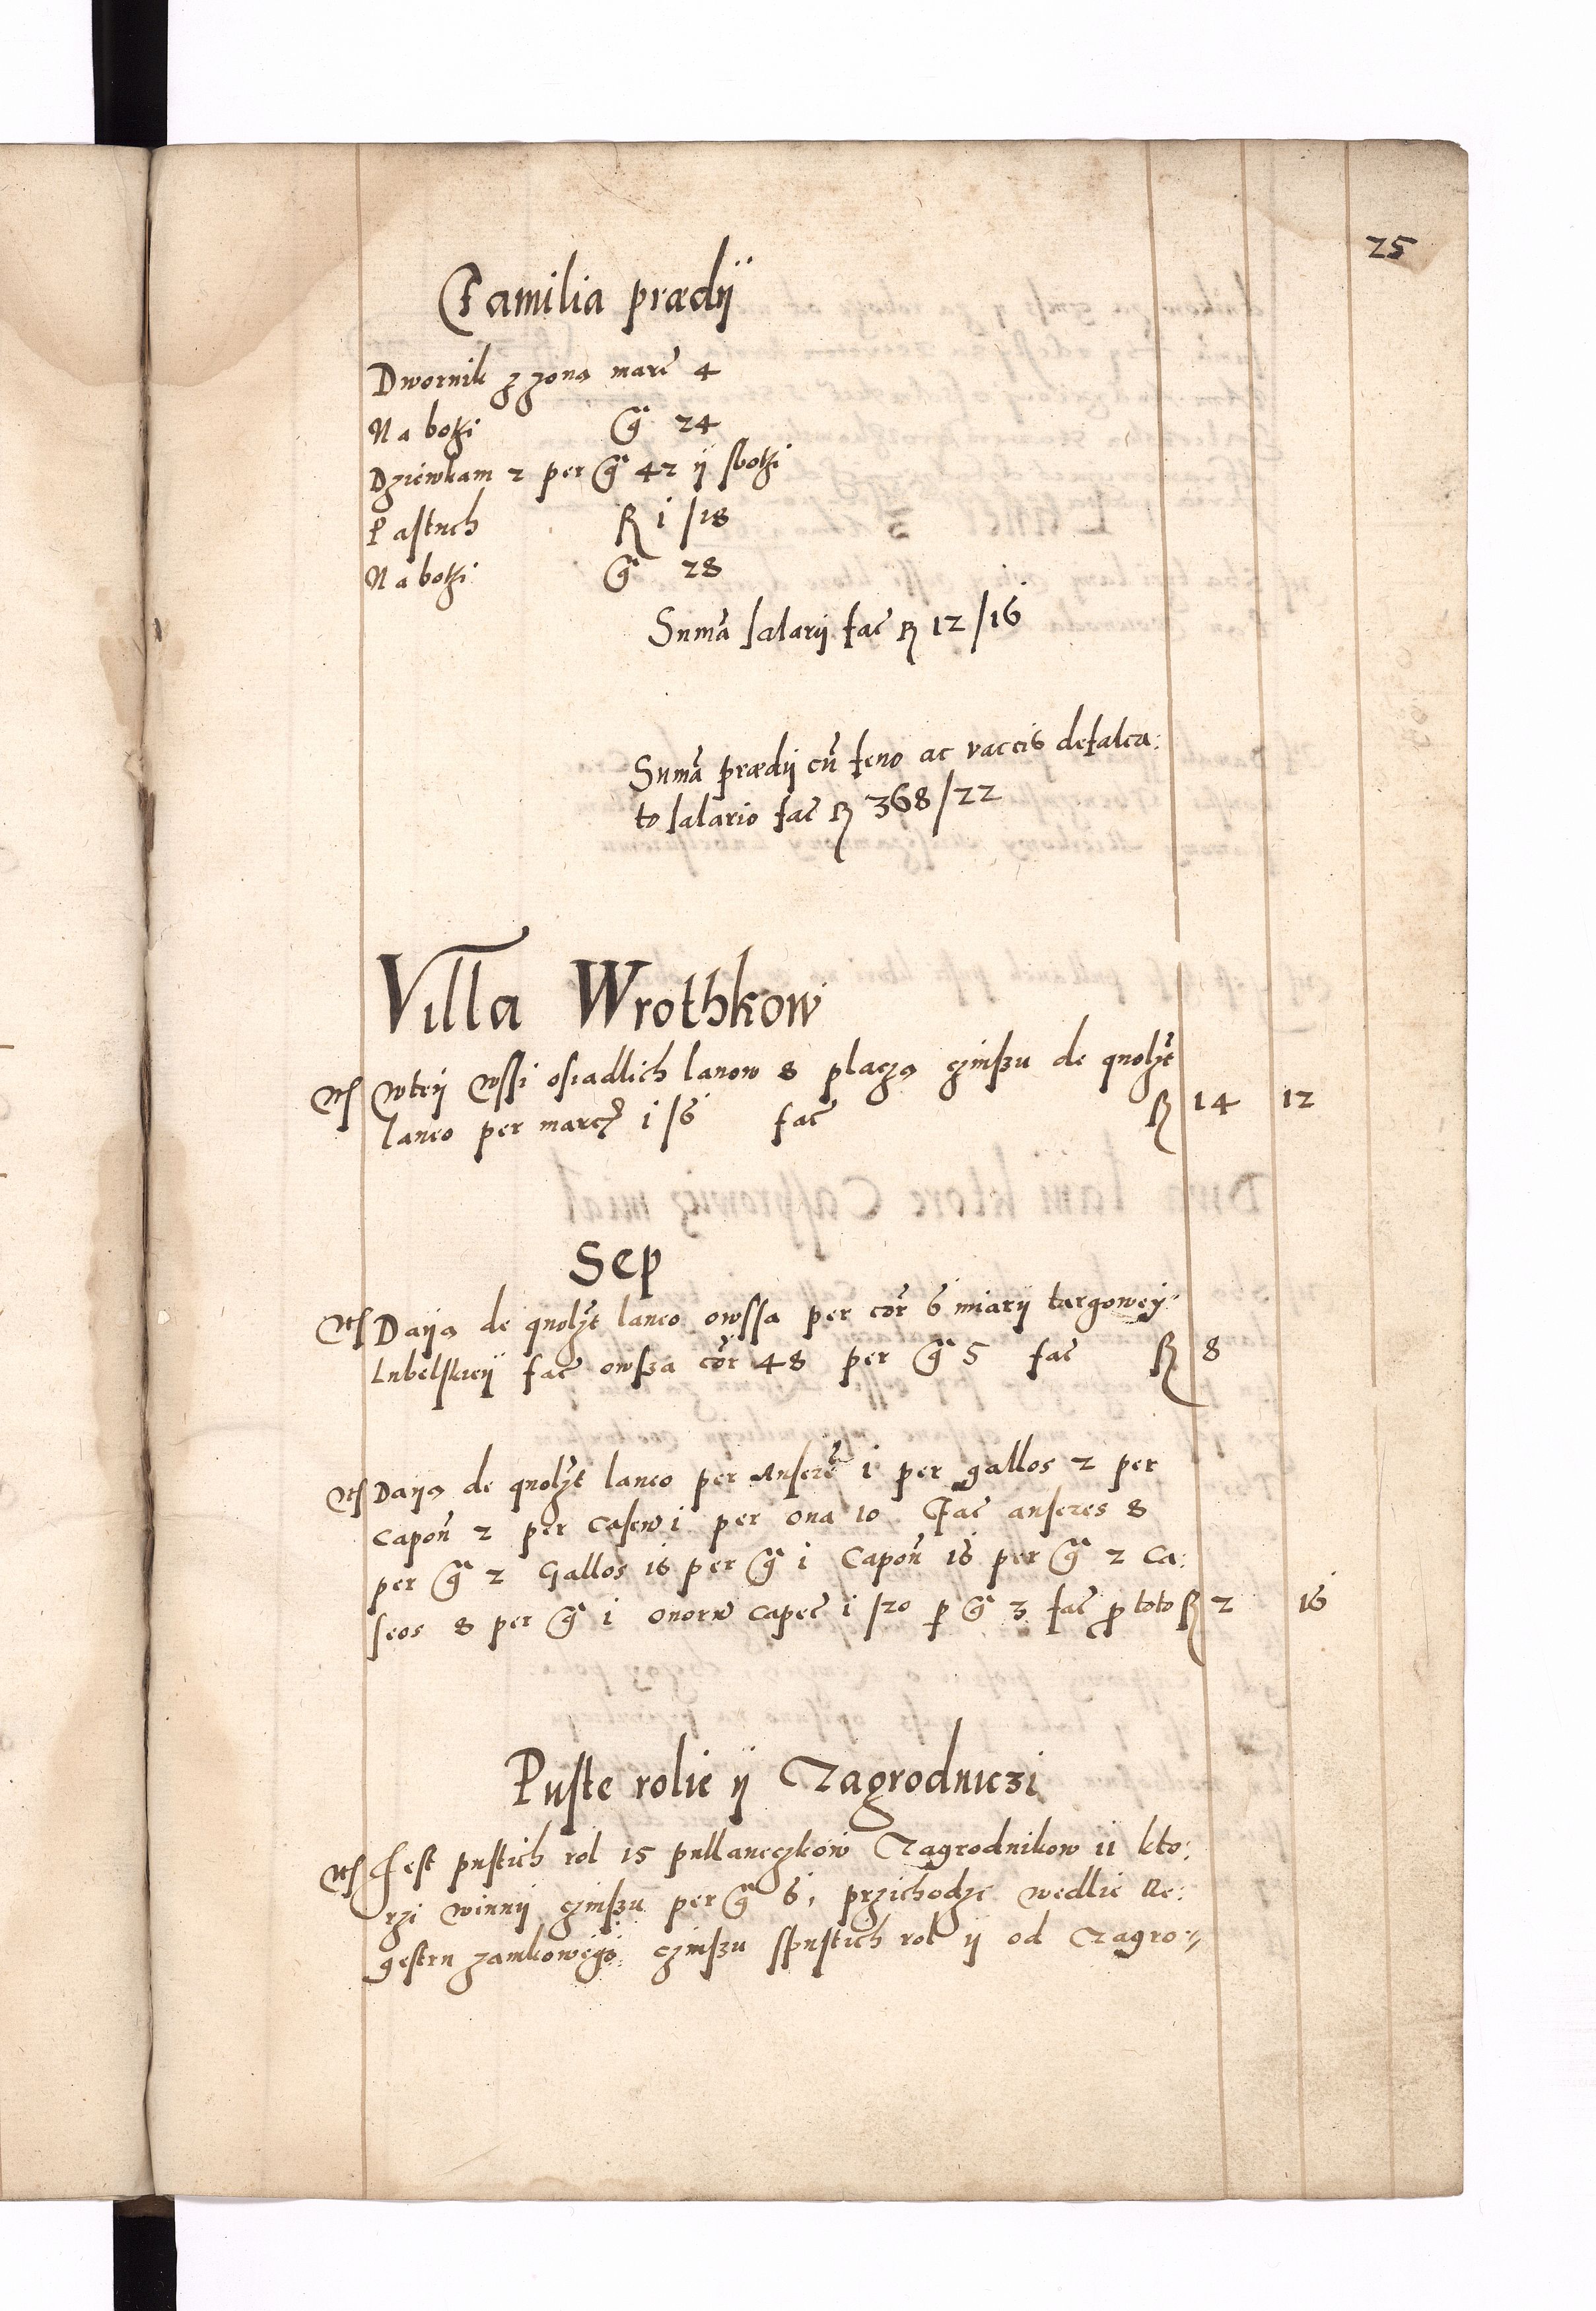 25
Familia prædij
Dwornik z zoną marc̃ 4
Na bothi g̃ 24
Dziewkam 2 per g̃ 42 ij sbothi
Pastuch R 1/18
Na bothi g̃ 28
Sum̃a salarij fac̃ R 12/16
Sum̃a prædij cũ feno ac vaccis defalca:
to salario fac̃ R 368/22
Villa Wrothkow
Wteij Wssi osiadlich lanow 8 placzą czinszu de quolẓt
laneo per marc̃ 1/6 fac̃ R 14 12
Sep
Daiją de quolẓt laneo owssa per cor̃ 6 miarij targoweij
Lubelskieij fac̃ owsza cor̃ 48 per g̃ 5 fac̃ R 8
Daiją de quolẓt laneo per Anserẽ 1 per gallos 2 per
Capoñ 2 per Caseũ 1 per Oua 10 Fac̃ anseres 8
per g̃ 2 Gallos 16 per g̃ 1 Capoñ 16 per g̃ 2 Ca:
seos 8 per g̃ 1 Ouorũ Capec̃ 1/20 p̱ g̃ 3 fac̃ ꝓ toto R 2 16
Puste rolie ij Zagrodniczi
Jest pustich rol 15 pullaneczkow Zagrodnikow 11 kto:
rzi winnij czinszu per g̃ 6, przichodzi wedlie Re:
gestru zamkowego czinszu spustich rol ij od Zagro:,